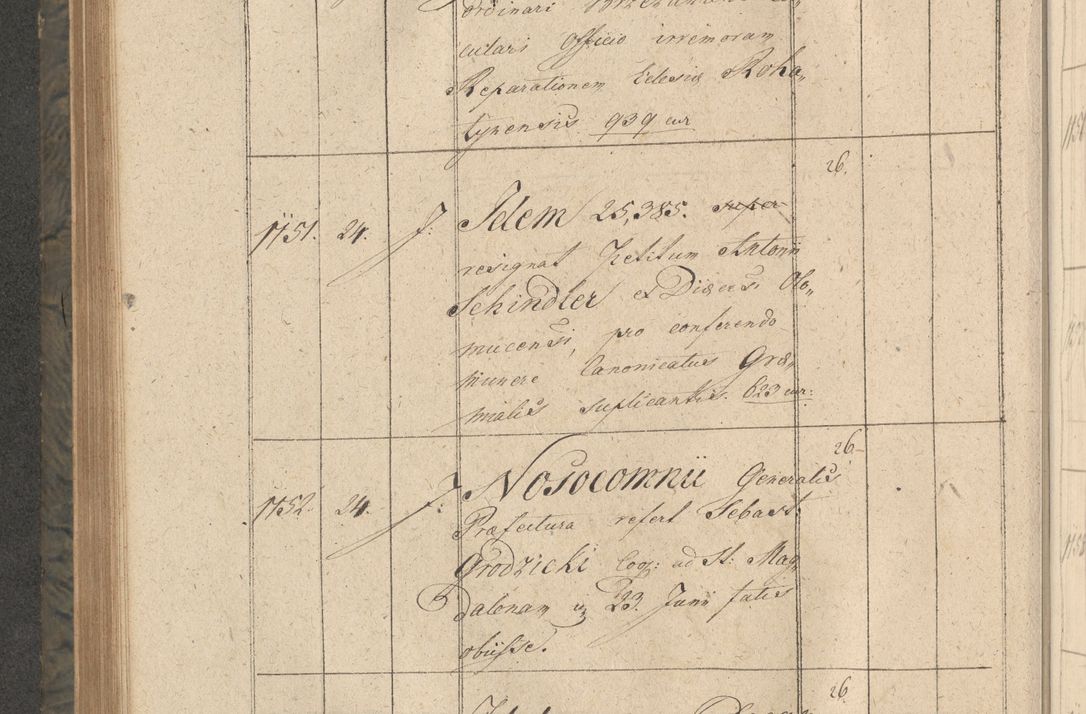 cutari Officio irremoram
Reparationem Eclesiæ Roha„
tynensis 939 cur
26.
1751. 24. J: Idem 25,385. super
resignat Petitum Antonii
Schindler ex Diœcesi Olo„
mucensi, pro conferendo
munere Canonicatus Græ„
mialis suplicantis. 623 cur:
26.
1752. 24. J: Nosocomnii Generalis
Præfectura refert Sebast:
Grodzicki Coop: ad St: Mag„
dalenam 23. Junii fatis
obiisse.
26